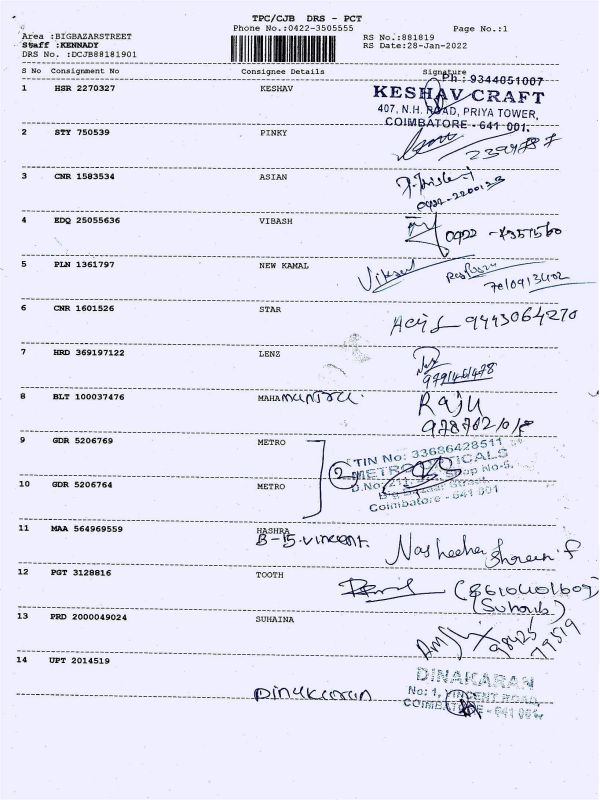 TPC/CJB DRS - PCT
Phone No.:0422-3505555 Page No.:1
Area :BIGBAZARSTREET
RS No.:881819
Staff :KENNADY
RS Date:28-Jan-2022
DRS No. :DCJB88181901
S No Consignment No Consignee Details Signature
Ph : 9344051007
1 HSR 2270327 KESHAV
KESHAV CRAFT
407, N.H. ROAD, PRIYA TOWER,
COIMBATORE - 641 001.
2 STY 750539 PINKY
3 CNR 1583534 ASIAN
0422-2200133
4 EDQ 25055636 VIBASH
0422
5 PLN 1361797 NEW KAMAL
7010913402
6 CNR 1601526 STAR
9443064270
7 HRD 369197122 LENZ
8 BLT 100037476 MAHA
Raju
9 GDR 5206769 METRO
TIN No: 33686428511
METRO OPTICALS
2
Shop No-5,
Big Bazaar Street,
10 GDR 5206764 METRO
Coimbatore - 641 001
11 MAA 564969559 HASHRA
B-15. Vincent.
12 PGT 3128816 TOOTH
(8610401609)
(Suhaib)
13 PRD 2000049024 SUHAINA
98425
79519
14 UPT 2014519
DINAKARAN
No: 1, VINCENT ROAD,
Dinakaran
COIMBATORE - 641 001.